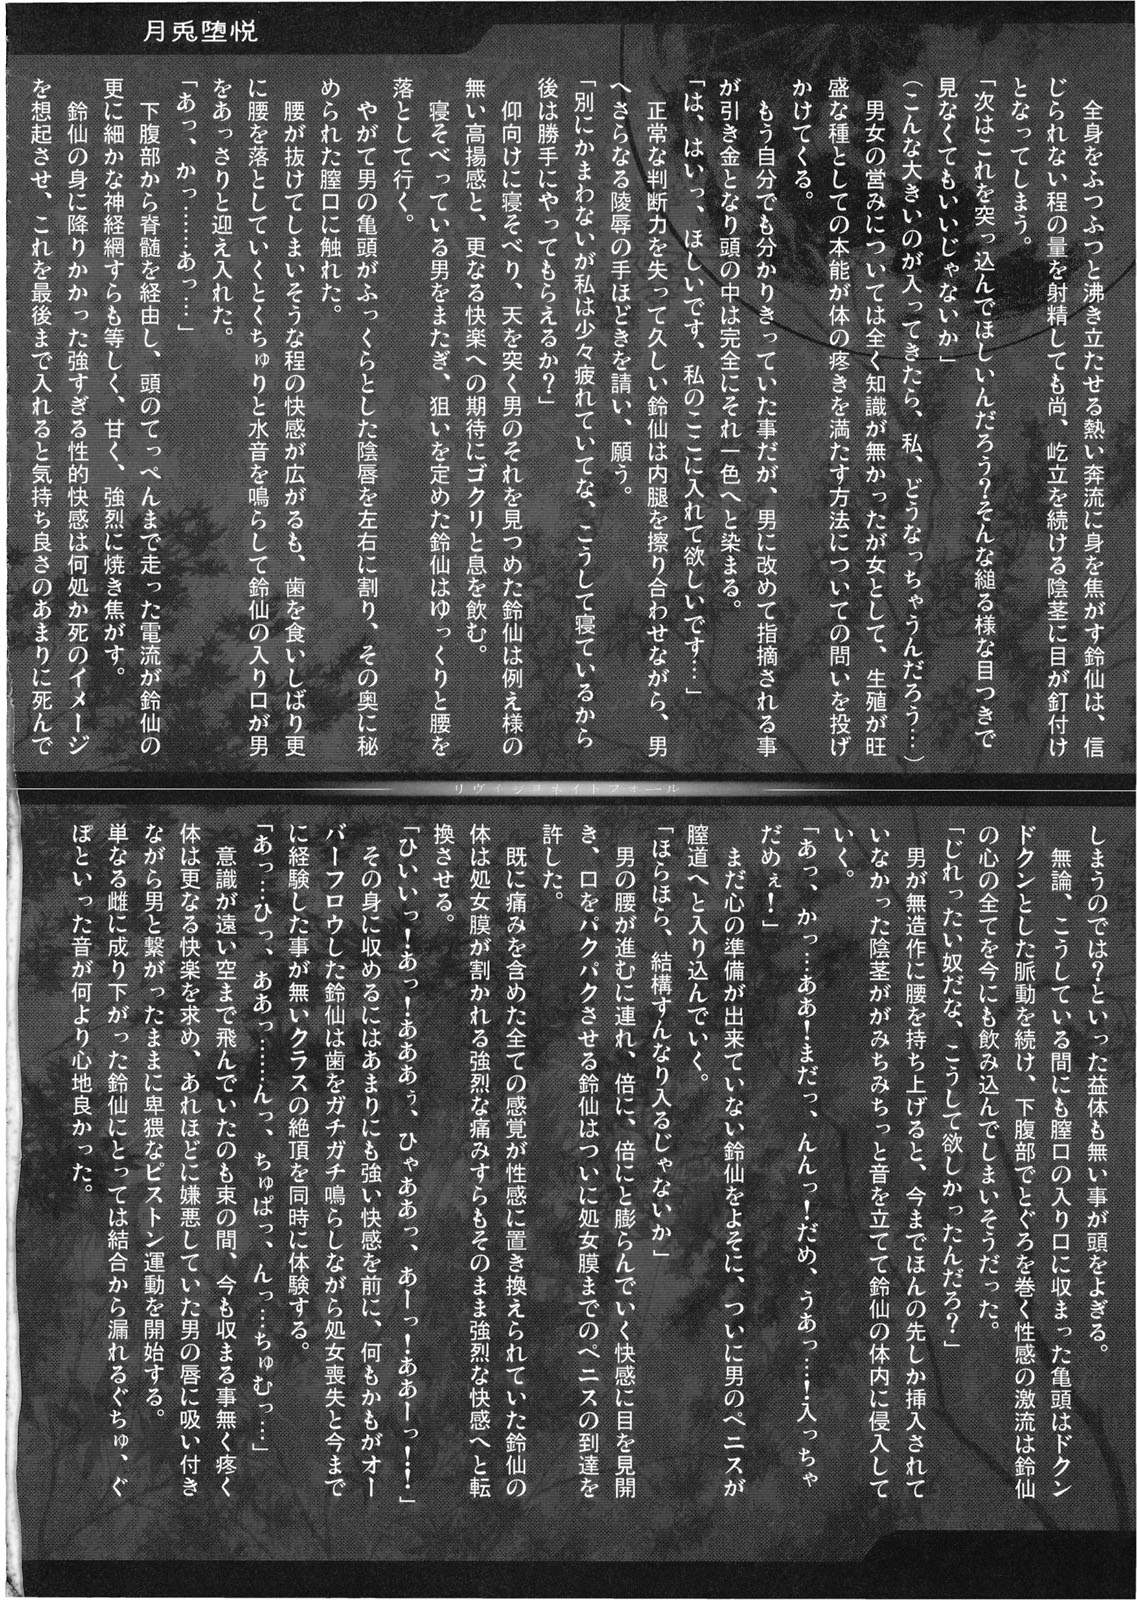 月兎堕悦
全身をふつふつと沸き立たせる熱い奔流に身を焦がす鈴仙は、信
じられない程の量を射精しても尚、屹立を続ける陰茎に目が釘付け
となってしまう。
「次はこれを突っ込んでほしいんだろう？そんな縋る様な目つきで
見なくてもいいじゃないか」
（こんな大きいのが入ってきたら、私、どうなっちゃうんだろう…）
男女の営みについては全く知識が無かったが女として、生殖が旺
盛な種としての本能が体の疼きを満たす方法についての問いを投げ
かけてくる。
もう自分でも分かりきっていた事だが、男に改めて指摘される事
が引き金となり頭の中は完全にそれ一色へと染まる。
「は、はいっ、ほしいです、私のここに入れて欲しいです…」
正常な判断力を失って久しい鈴仙は内腿を擦り合わせながら、男
へさらなる陵辱の手ほどきを請い、願う。
「別にかまわないが私は少々疲れていてな、こうして寝ているから
後は勝手にやってもらえるか？」
仰向けに寝そべり、天を突く男のそれを見つめた鈴仙は例え様の
無い高揚感と、更なる快楽への期待にゴクリと息を飲む。
寝そべっている男をまたぎ、狙いを定めた鈴仙はゆっくりと腰を
落として行く。
やがて男の亀頭がふっくらとした陰唇を左右に割り、その奥に秘
められた膣口に触れた。
腰が抜けてしまいそうな程の快感が広がるも、歯を食いしばり更
に腰を落としていくとくちゅりと水音を鳴らして鈴仙の入り口が男
をあっさりと迎え入れた。
「あっ、かっ……あっ…」
下腹部から脊髄を経由し、頭のてっぺんまで走った電流が鈴仙の
更に細かな神経網すらも等しく、甘く、強烈に焼き焦がす。
鈴仙の身に降りかかった強すぎる性的快感は何処か死のイメージ
を想起させ、これを最後まで入れると気持ち良さのあまりに死んで
リヴィジョネイトフォール
しまうのでは？といった益体も無い事が頭をよぎる。
無論、こうしている間にも膣口の入り口に収まった亀頭はドクン
ドクンとした脈動を続け、下腹部でとぐろを巻く性感の激流は鈴仙
の心の全てを今にも飲み込んでしまいそうだった。
「じれったい奴だな、こうして欲しかったんだろ？」
男が無造作に腰を持ち上げると、今までほんの先しか挿入されて
いなかった陰茎ががみちみちっと音を立てて鈴仙の体内に侵入して
いく。
「あっ、かっ…ああ！まだっ、んんっ！だめ、うあっ…！入っちゃ
だめぇ！」
まだ心の準備が出来ていない鈴仙をよそに、ついに男のペニスが
膣道へと入り込んでいく。
「ほらほら、結構すんなり入るじゃないか」
男の腰が進むに連れ、倍に、倍にと膨らんでいく快感に目を見開
き、口をパクパクさせる鈴仙はついに処女膜までのペニスの到達を
許した。
既に痛みを含めた全ての感覚が性感に置き換えられていた鈴仙の
体は処女膜が割かれる強烈な痛みすらもそのまま強烈な快感へと転
換させる。
「ひいいっ！あっ！あああぅ、ひゃああっ、あーっ！ああーっ！！」
その身に収めるにはあまりにも強い快感を前に、何もかもがオー
バーフロウした鈴仙は歯をガチガチ鳴らしながら処女喪失と今まで
に経験した事が無いクラスの絶頂を同時に体験する。
「あっ…ひっ、ああっ……んっ、ちゅぱっ、んっ…ちゅむっ…」
意識が遠い空まで飛んでいたのも束の間、今も収まる事無く疼く
体は更なる快楽を求め、あれほどに嫌悪していた男の唇に吸い付き
ながら男と繋がったままに卑猥なピストン運動を開始する。
単なる雌に成り下がった鈴仙にとっては結合から漏れるぐちゅ、ぐ
ぽといった音が何より心地良かった。